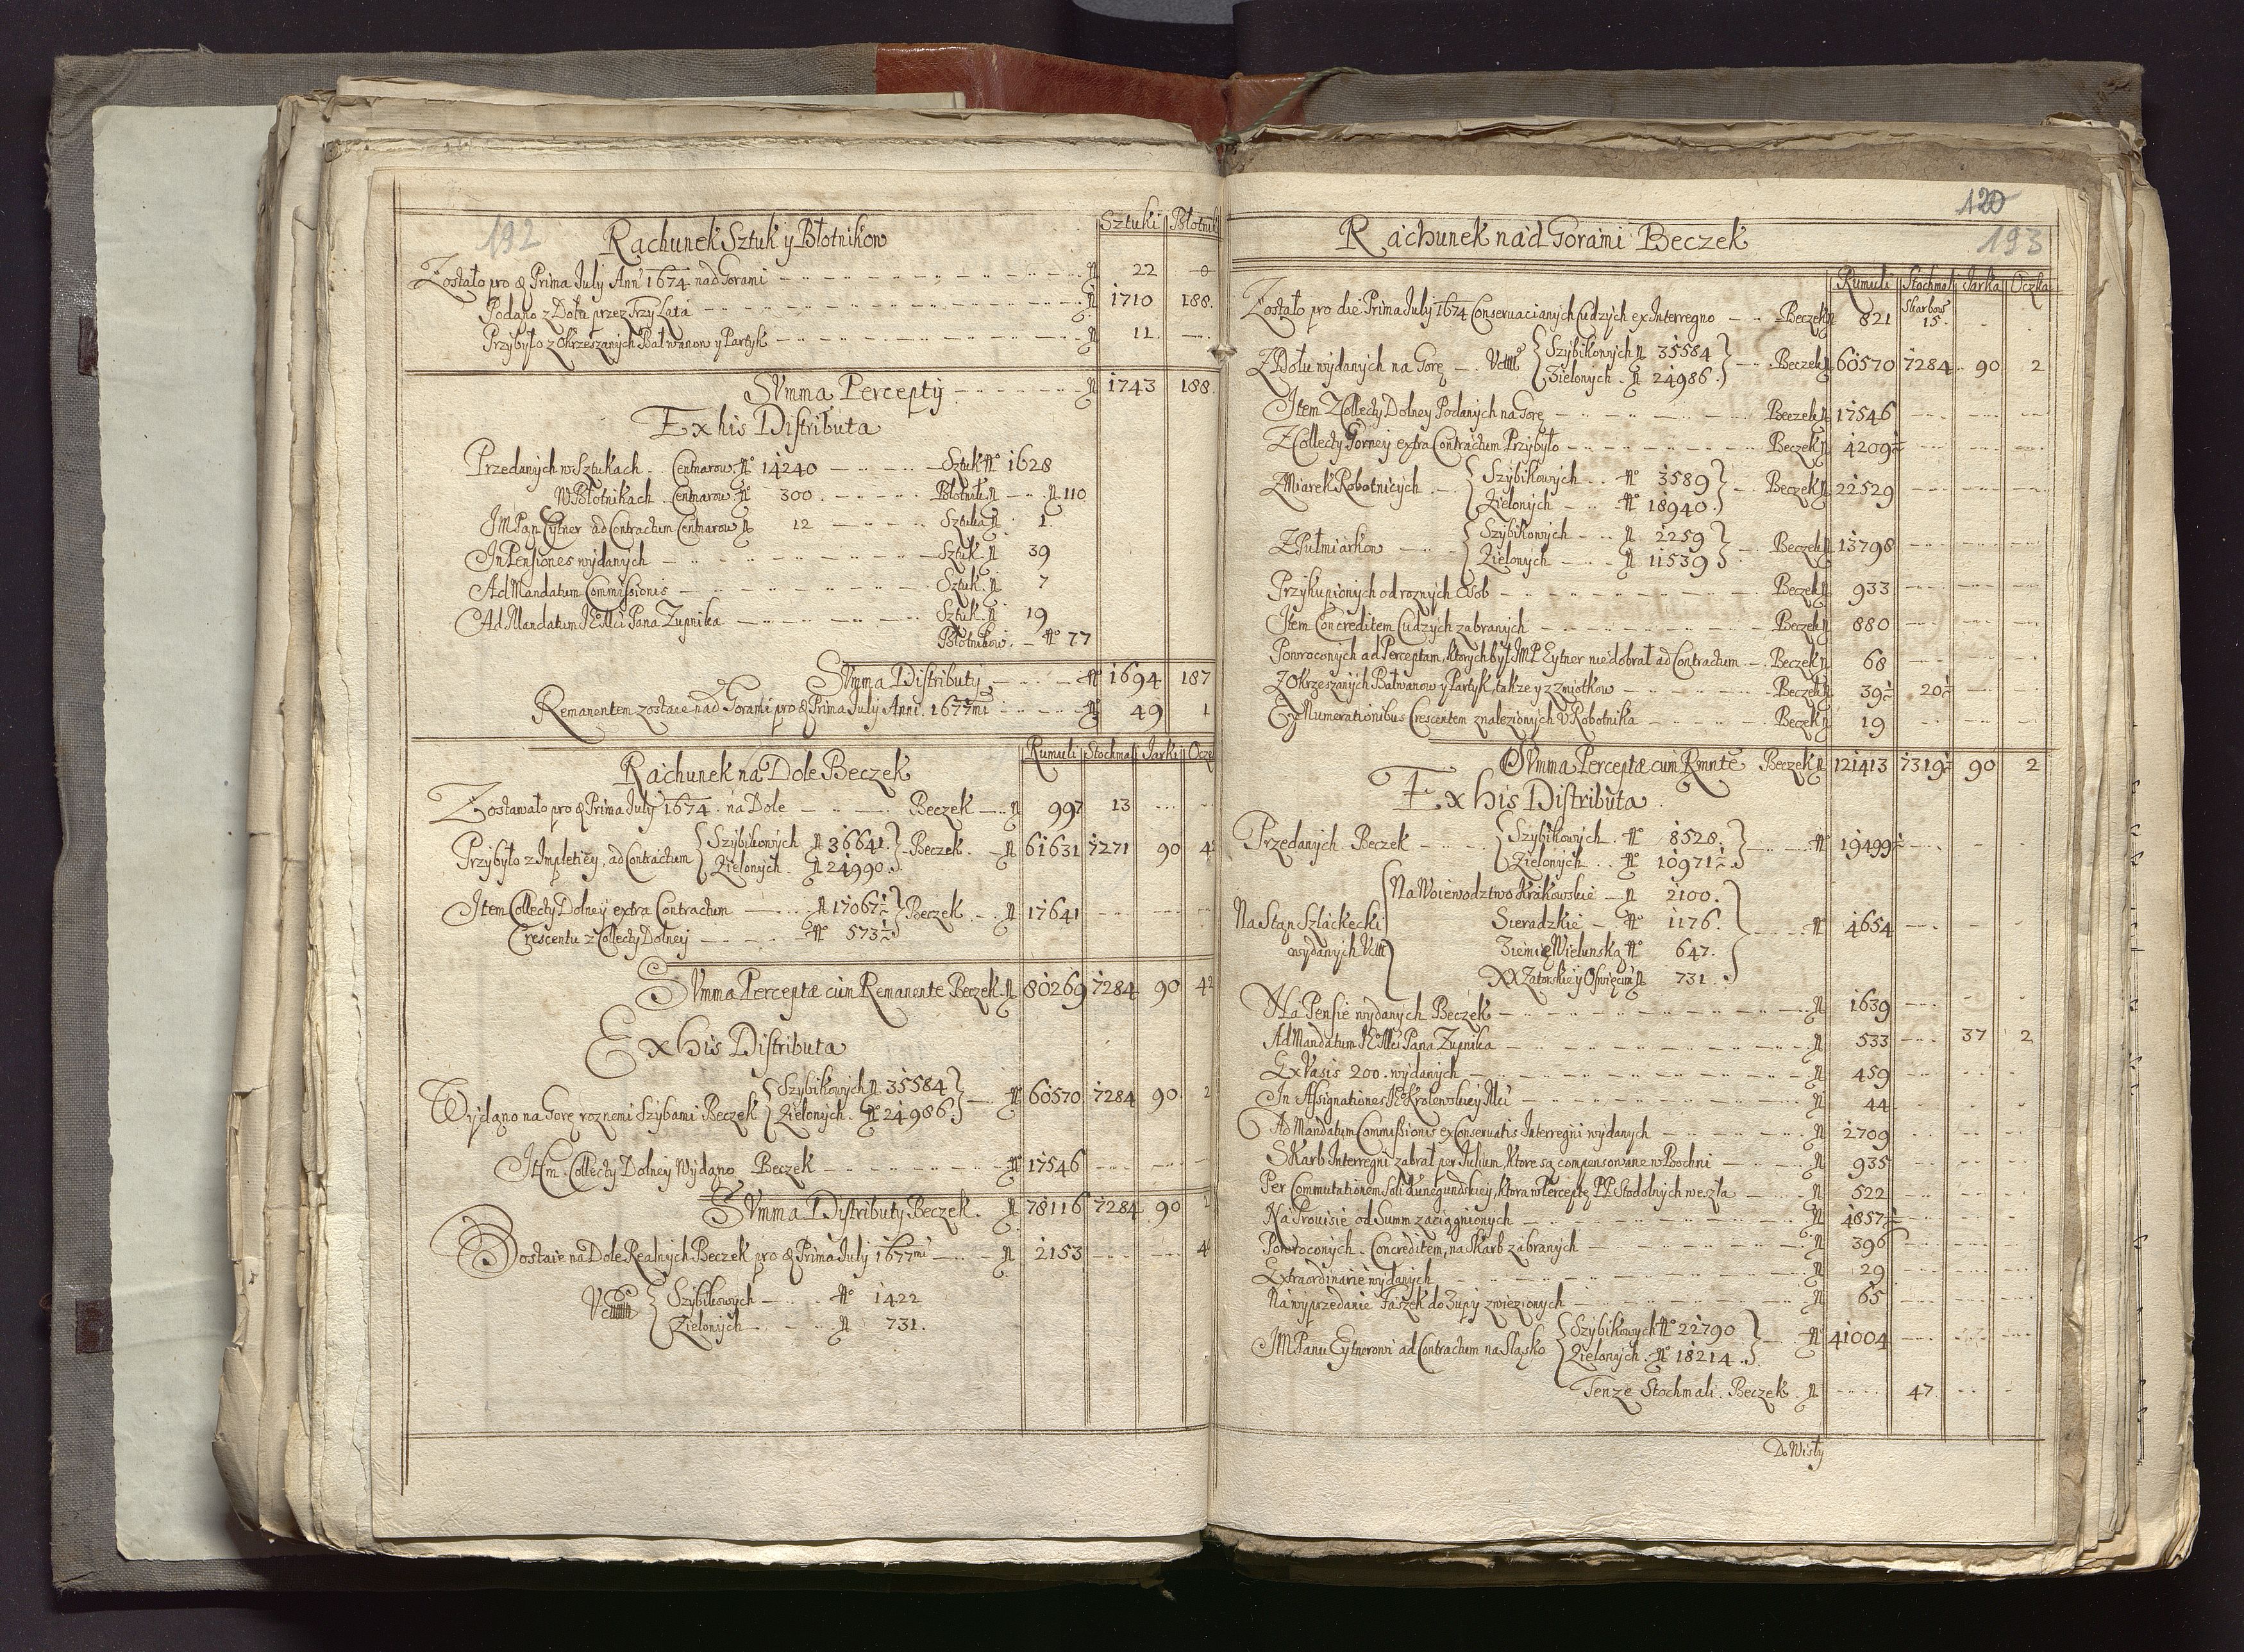 192
Rachunek Sztuk y Błotnikow Sztuki Błotnik
Zostało pro d. Prima July Anni 1674 nad Gorami N 22 0
Podano z Dołu przez Trzy Lata N 1710 188.
Przybyło z Okrzeszanych Bałwanow y Partyk N 11
Summa Percepty N 1743 188
Ex his Distributa
Przedanych w Sztukach Centnarow No 14240 Sztuk No 1628
W Błotnikach Centnarow No 300. Błotnik. N N 110
JM Pan Eytner ad Contractum Centnarow N 12 Sztuka N 1.
In Pensiones wydanych Sztuk. N 39
Ad Mandatum Commissionis Sztuk. N 7
Ad Mandatum JE. Mci Pana Zupnika Sztuk N 19
Błotnikow. No 77
Summa Distributy No 1694 187
Remanentem zostaie nad Gorami pro d. Prima July Anni 1677mi N 49 1
Rumuli Stochmali Jarki Oczk
Rachunek na Dole Beczek
Zostawało pro d. Prima July 1674. na Dole Beczek N 997 13
Przybyło z Impletiey, ad Contractum { Szybikowych N 36641. Zielonych. N 24990. } Beczek. N 61631 7271 90 4
Item Collecty Dolney extra Contractum N 17067½ } Beczek N 17641
Crescentu z Collecty Dolney No 573½
Summa Perceptæ cum Remanente Beczek. N 80269 7284 90 4
Ex his Distributa
Wydano na Gorę roznemi Szybami Beczek { Szybikowych N. 35584 Zielonych. No 24986. } No 60570 7284 90. 2
Item Collecty Dolney Wydano Beczek No 17546
Summa Distributy Beczek. N 78116 7284 90
Zostaie na Dole Realnych Beczek pro d. Prima July 1677mi N 2153 4
Szybikowych No 1422
Zielonych N 731.
120
193
Rachunek nad Gorami Beczek
Rumuli Stochmali Jarka Oczka
Zostało pro die Prima July 1674 Conservacianych Cudzych ex Interregno Beczek N 821 Skarbow 15.
Z Dołu wydanych na Gorę { Szybikowych N 35584 Zielonych. N 24986. } Beczek N 60570 7284 90 2
Item Z Collecty Dolney Podanych na Gorę Beczek N 17546
Z Collecty Gorney extra Contractum Przybyło Beczek N 4209½
Z Miarek Robotniczych { Szybikowych No 3589 Zielonych No 18940. } Beczek N 22529
Z Pułmiarkow { Szybikowych N 2259 Zielonych N 11539 } Beczek N 13798
Przykupionych od roznych Osob Beczek N 933
Item Concreditem Cudzych zabranych Beczek N 880
Powroconych ad Perceptam, ktorych był JMP Eytner nie dobrał ad Contractum Beczek N 68
Z Okrzeszanych Bałwanow y Partyk, takze y z zmiotkow Beczek N 39½ 20½
Ex Numerationibus Crescentem znalezionych U Robotnika Beczek N 19
Summa Perceptæ cum Rmnte Beczek N 121413 7319½ 90 2
Ex his Distributa
Przedanych Beczek { Szybikowych. No 8528. Zielonych No 10971½. } No 19499½
Na Stan Szlachecki wydanych
Na Woiewodztwo Krakowskie N 2100.
Sieradzkie No 1176. No 4654
Ziemię Wielunską No 647.
XX Zatorskie y Oswięcim N 731.
Na Pensie wydanych Beczek N 1639
Ad Mandatum JE. Mci Pana Zupnika N 533 37 2
Ex Vasis 200. wydanych N 459
In Assignationes JE Krolewskiey Mci N 44
Ad Mandatum Commissionis ex Conservatis Interregni wydanych N 2709
Skarb Interregni zabrał per Julium, ktore są compensowane w Bochni N 935
Per Commutationem Soli Kunegundskiey, ktora w Perceptę PP. Stodolnych weszła N 522
Na Prouisie od Summ zaciągnionych N 4857½
Powroconych Concreditem, na Skarb zabranych N 396
Extraordinarie wydanych N 29
Na wyprzedanie Faszek do Zupy zwiezionych N 65
JM Panu Eytnerowi ad Contractum na Sląsko { Szybikowych No 22790 Zielonych. No 18214. } N 41004
Tenze Stochmali. Beczek. N 47
Do Wisły